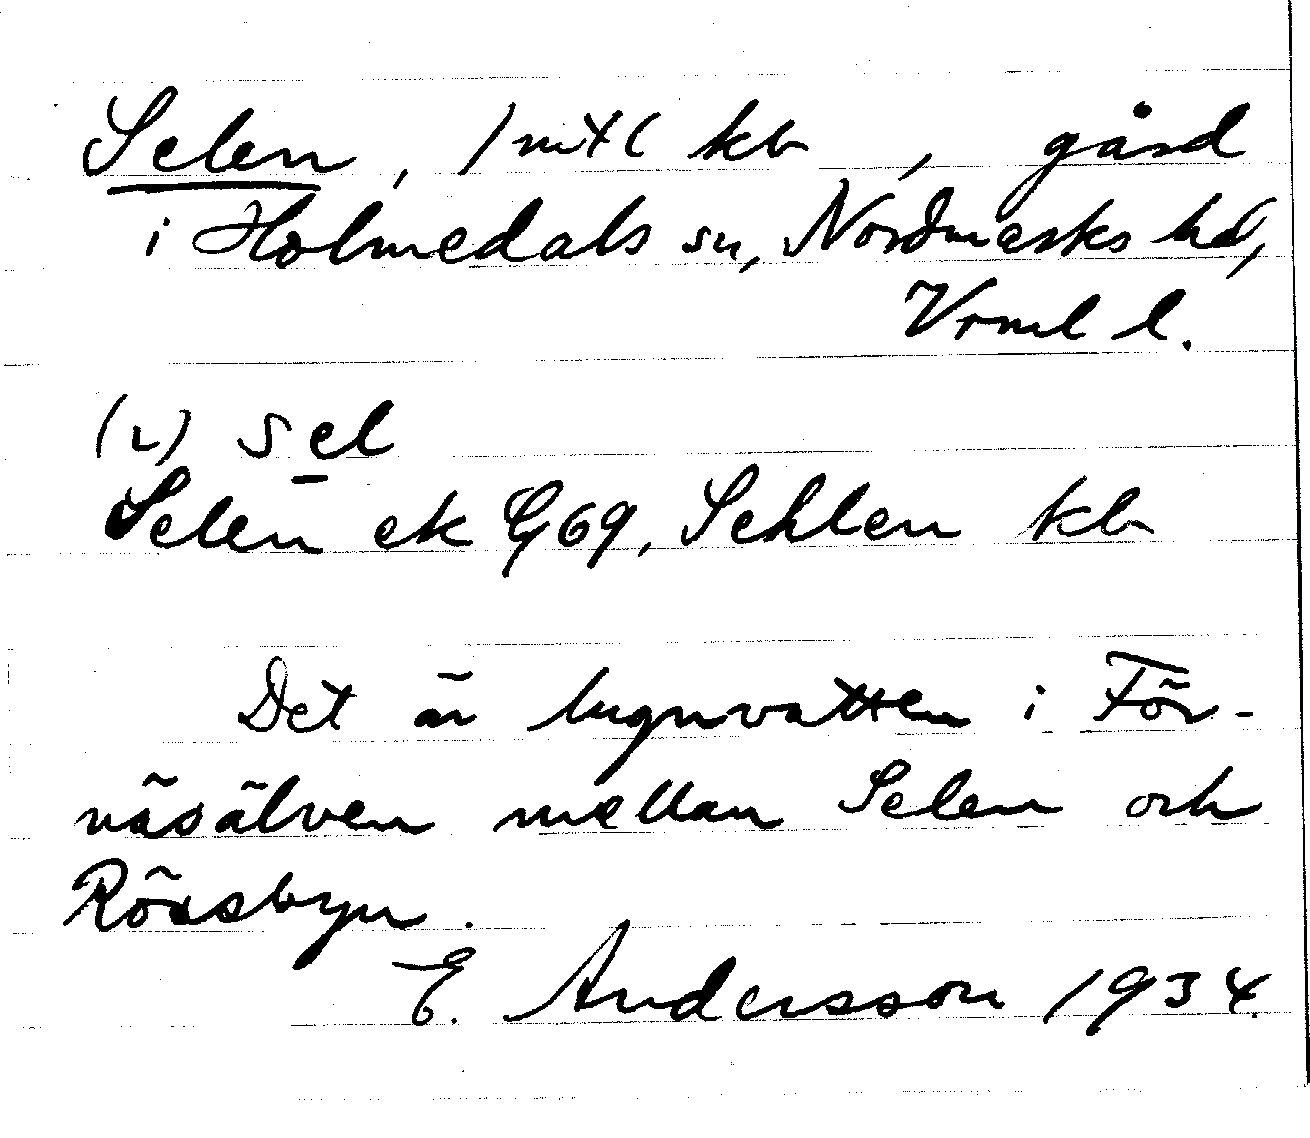 Selen, 1 mtl kb, gård
i Holmedals sn, Nordmarks hd,
Vrml l.
(i) sel
Selen ek G 69, Sehlen kb
Det är lugnvatten i För-
näsälven mellan Selen och
Rövsbyn.
E. Andersson 1934.